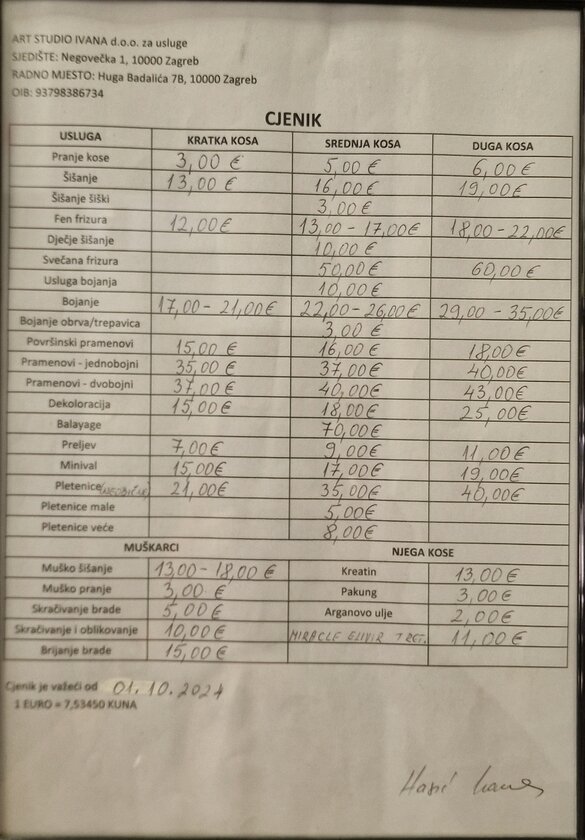 ART STUDIO IVANA d.o.o. za usluge
SJEDIŠTE: Negovečka 1, 10000 Zagreb
RADNO MJESTO: Huga Badalića 7B, 10000 Zagreb
OIB: 93798386734
CJENIK
USLUGA KRATKA KOSA SREDNJA KOSA DUGA KOSA
Pranje kose 3,00 € 5,00 € 6,00 €
Šišanje 13,00 € 16,00 € 19,00 €
Šišanje šiški 3,00 €
Fen frizura 12,00 € 13,00 - 17,00 € 18,00 - 22,00 €
Dječje šišanje 10,00 €
Svečana frizura 50,00 € 60,00 €
Usluga bojanja 10,00 €
Bojanje 17,00 - 21,00 € 22,00 - 26,00 € 29,00 - 35,00 €
Bojanje obrva/trepavica 3,00 €
Površinski pramenovi 15,00 € 16,00 € 18,00 €
Pramenovi - jednobojni 35,00 € 37,00 € 40,00 €
Pramenovi - dvobojni 37,00 € 40,00 € 43,00 €
Dekoloracija 15,00 € 18,00 € 25,00 €
Balayage 70,00 €
Preljev 7,00 € 9,00 € 11,00 €
Minival 15,00 € 17,00 € 19,00 €
Pletenice 21,00 € 35,00 € 40,00 €
Pletenice male 5,00 €
Pletenice veće 8,00 €
MUŠKARCI NJEGA KOSE
Muško šišanje 13,00 - 18,00 € Kreatin 13,00 €
Muško pranje 3,00 € Pakung 3,00 €
Skračivanje brade 5,00 € Arganovo ulje 2,00 €
Skračivanje i oblikovanje 10,00 € MIRACLE ELIXIR TRET. 11,00 €
Brijanje brade 15,00 €
Cjenik je važeći od 01.10.2024
1 EURO = 7,53450 KUNA